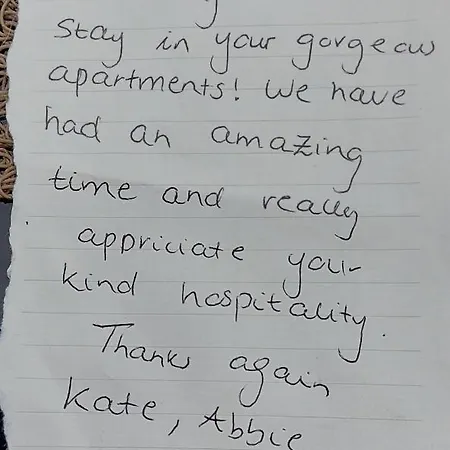 Stay in your gorgeous
apartments! We have
had an amazing
time and really
appriciate your
kind hospitality.
Thanks again
Kate, Abbie